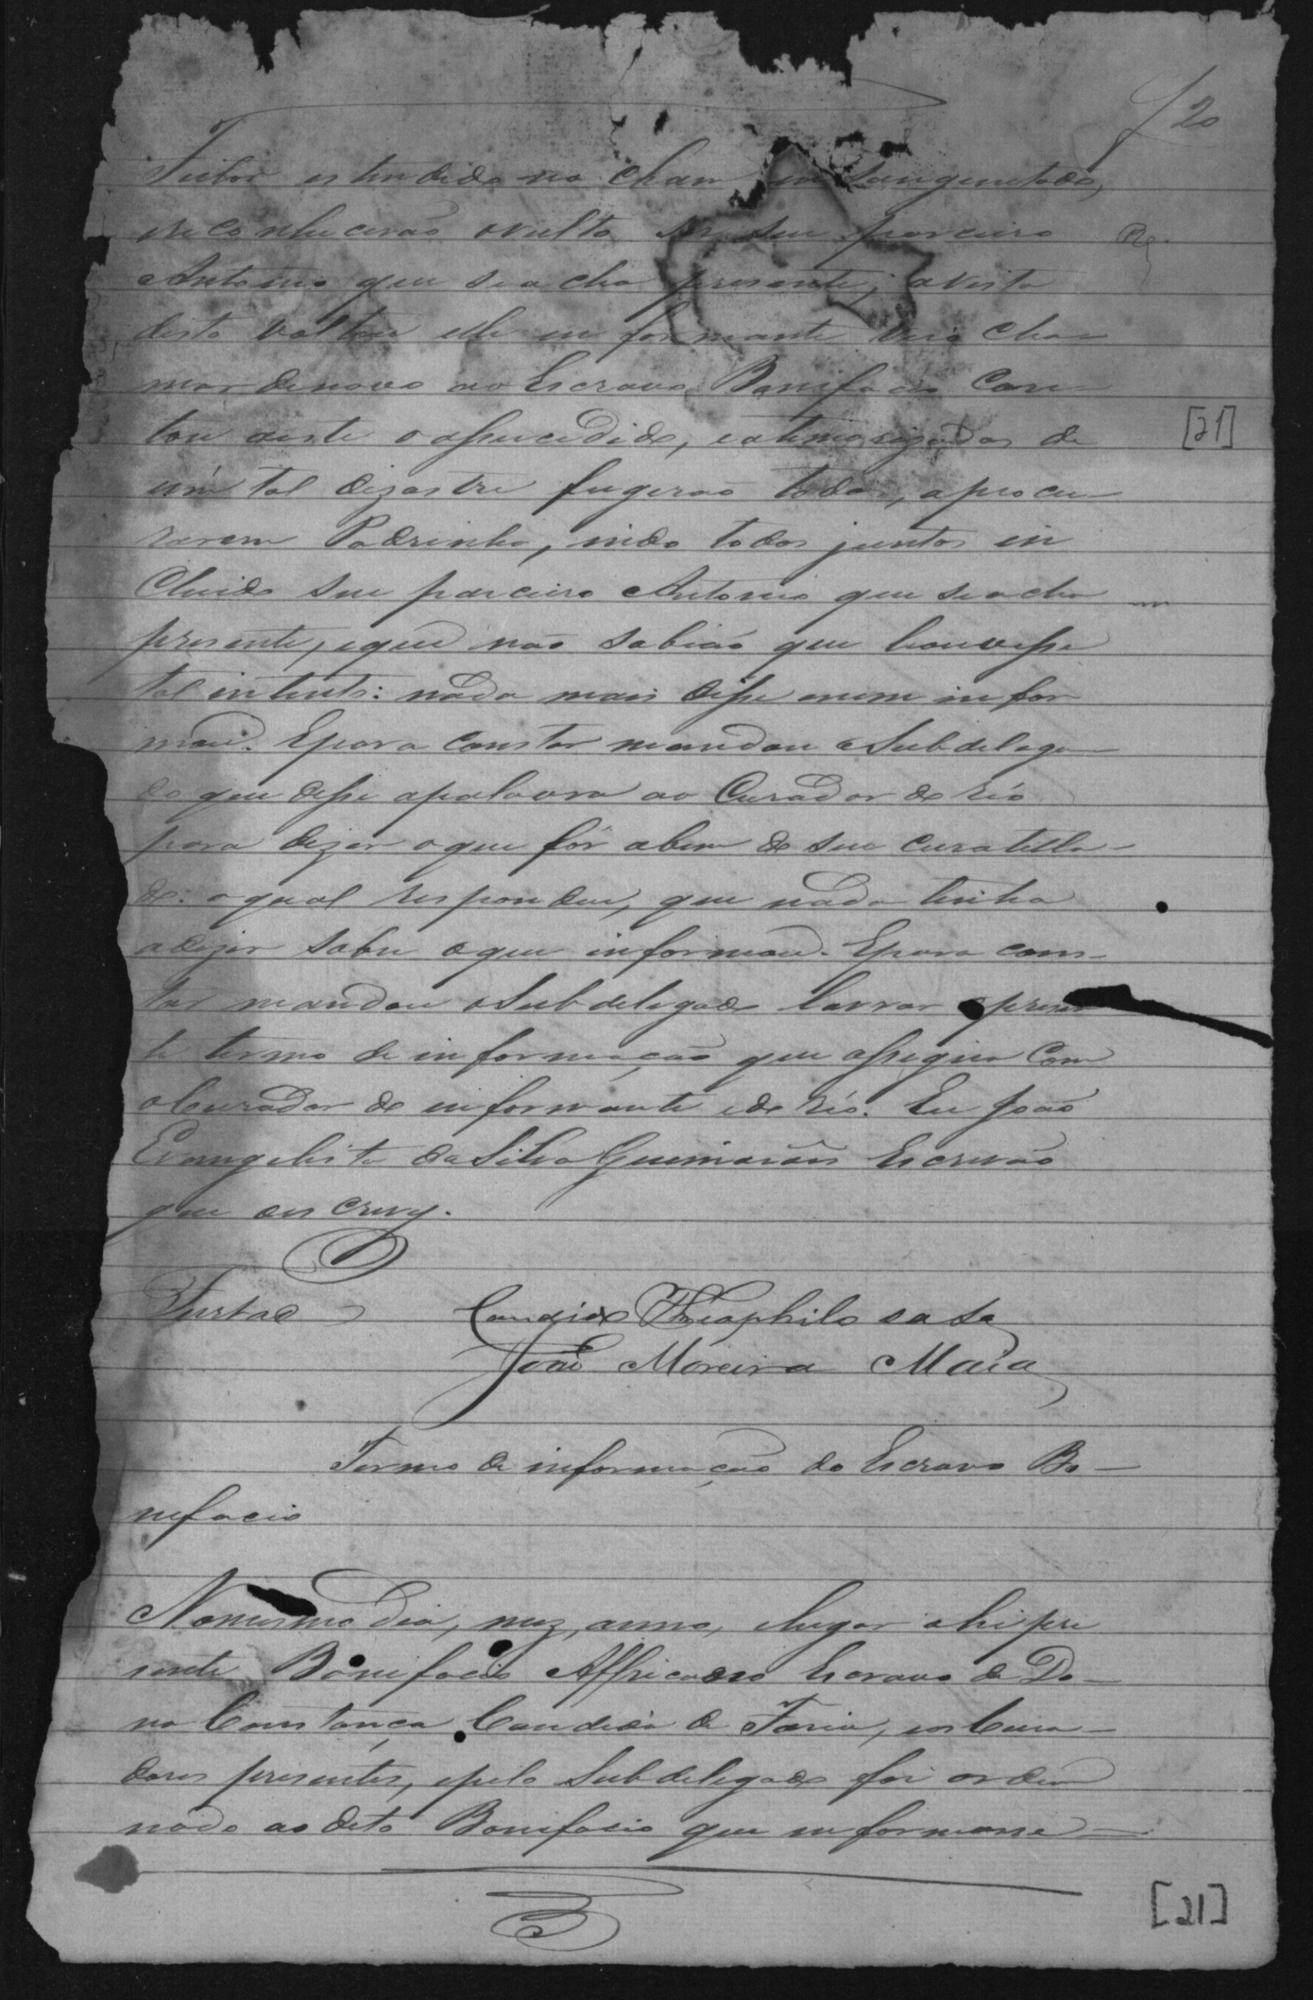 f 20
Feitor estendido no cham em sanguentado,
reconhecerão o vulto de seu parceiro Rg.
Antonio que se acha presente; a vista
disto voltou elle in formante veio cha-
mar denovo ao Escravo Bonifacio Con-
tou aeste o assucedido, e atimorizados de [21]
um tal dizastre fugirão todos, a procu-
rarem Padrinho, indo todos juntos in
cluido seu parceiro Antonio que seacha
presente, e que não sabião que houvesse
tal intento: nada mais disse nem infor
mou. Epara constar mandou o Subdelega-
do que desse apalavra ao Curador do réo
para dizer o que fôr abem de seu curatella-
do: o qual respondeu, que nada tinha
adizer sobre o que informou. Epara cons-
tar mandou o Subdelegado lavrar o presen
te termo de informação que assigna com
o Curador do informante e do réo. Eu João
Evangelista da Silva Guimarães Escrivão
que o escrevy.
Furtado Candido Theophilo da Sa
João Moreira Maia
Termo de informação do Escravo Bo-
nifacio
Nomesmo dia, mez, anno, e lugar ahi pre
sente Bonifacio Affricano Escravo de Do-
na Constança Candida de Faria, e os Cura-
dores presentes, epelo Subdelegado foi orde
nado ao dito Bonifacio que informasse-
[21]